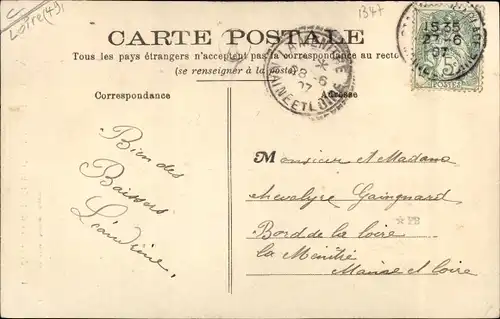 Loire (49)
1347
CARTE POSTALE
Tous les pays étrangers n'acceptent pas la correspondance au recto
(se renseigner à la poste)
LA MENITRÉ
28 -6
07
MAINE ET LOIRE
15 35
27 -6
07
5c
POSTES
Correspondance
Adresse
Bien des
Baisers
Léandrine,
Monsieur et Madame
chevalyre Gaingnard
Bord de la loire
la Ménitré
Maine et loire